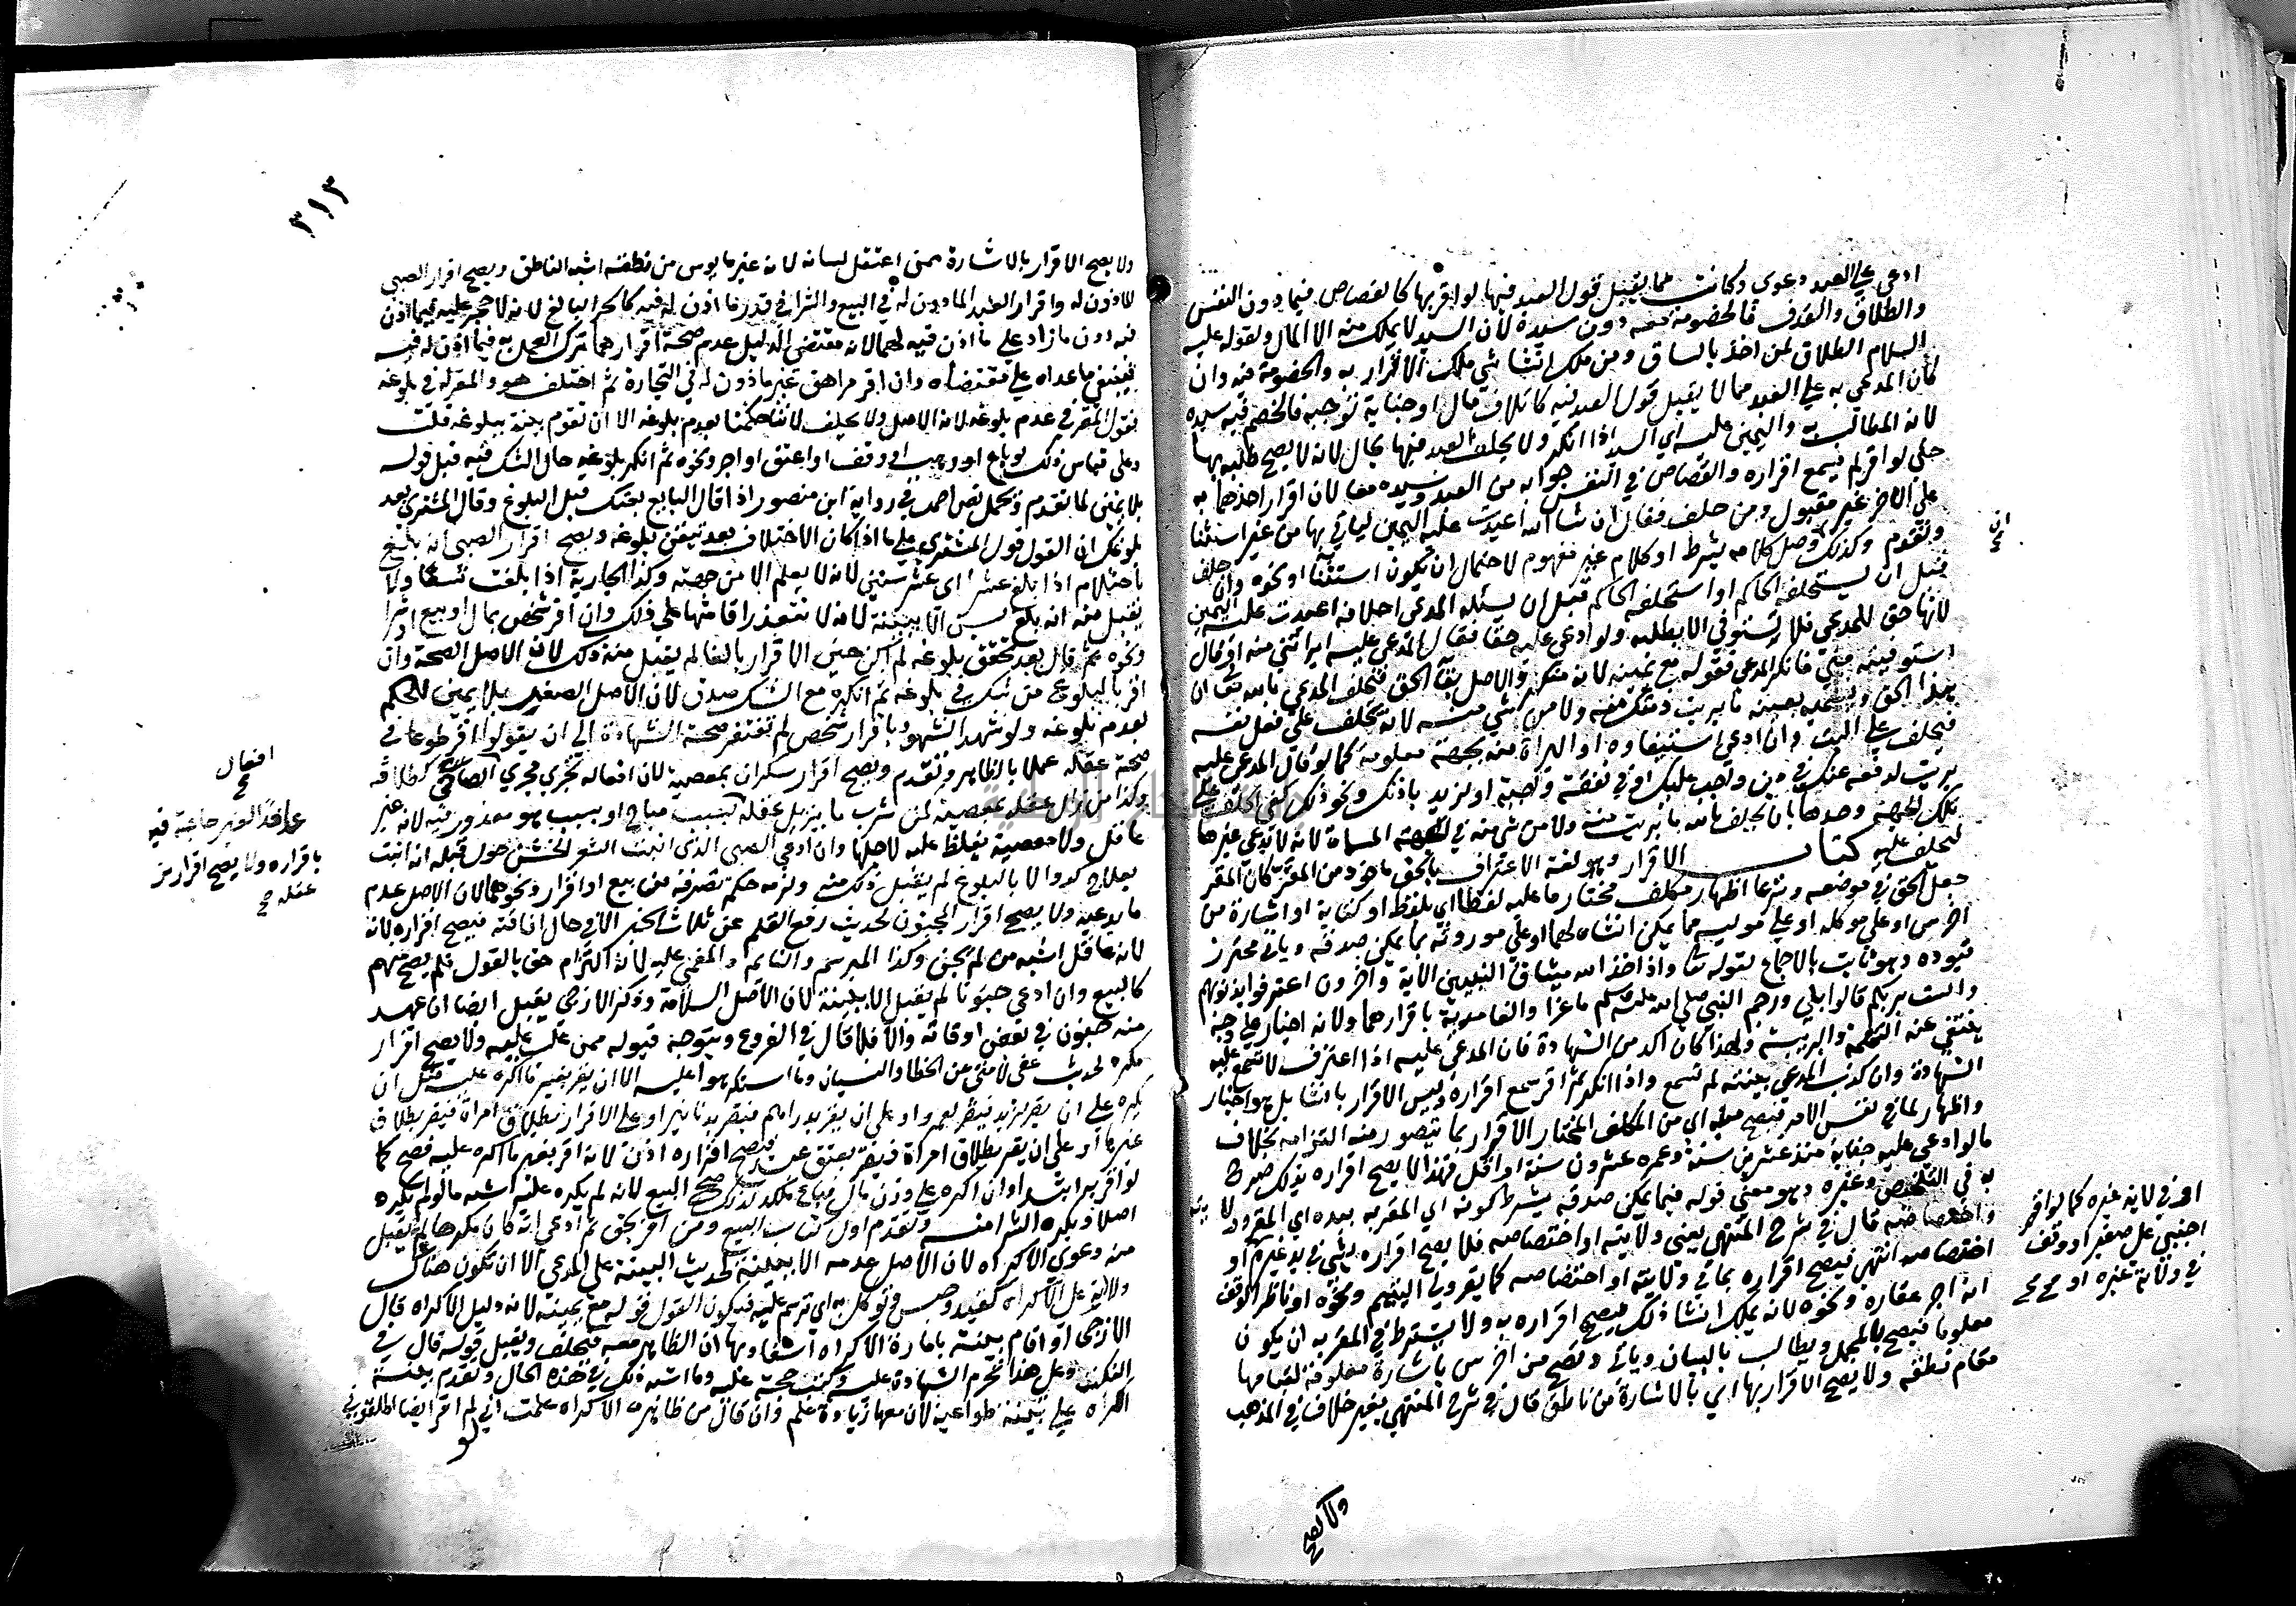 ادعي علي العبد دعوى وكانت مما يقبل قول العبد فيها لو اقر بها كالقصاص فيما دون النفس
والطلاق والقذف فالخصومة معه دون سيده لان السيد لا يملك منه الا المال ولقوله عليه
السلام الطلاق لمن اخذ بالساق ومن ملك انشا شي ملك الاقرار به والخصومة فيه وان
كان المدعي به علي العبد مما لا يقبل قول العبد فيه كاتلاف مال او جناية توجبه فالخصم فيه سيده
لانه المطالب به واليمين عليه اي السيد اذا انكر ولا يحلف العبد فيها بحال لانه لا يصح طلبه بها
حتي لو اقر لم يسمع اقراره والقصاص في النفس جوابه من العبد وسيده معا لان اقرار احدهما به
علي الاخر غير مقبول ومن حلف فقال ان شا الله اعيدت عليه اليمين لياتي بها من غير استثنا
وتقدم وكذلك وصل كلامه بشرط او كلام غير مفهوم لاحتمال ان يكون استثنا او نحوه وان حلف
قبل ان يستحلفه الحاكم او استحلفه الحاكم قبل ان يسئله المدعي احلافه اعيدت عليه اليمين
لانها حق للمدعي فلا تستوفي الا بطلبه ولو ادعي عليه حقا فقال المدعي عليه ابراتني منه او قال
استوفيته مني فانكر المدعي فقوله مع يمينه لانه منكر والاصل بقا الحق فيحلف المدعي بالله تعالي ان
هذا الحق ويسميه بعينه ما برئت ذمتك منه ولا من شي منه لانه يحلف علي فعل نفسه
فيحلف علي البت وان ادعي استيفاه او البراة منه بجهة معلومة كما لو قال المدعي عليه
برئت لدفعه عنك في دين واجب عليك او في نفقة واجبة او لزيد باذنك ونحو ذلك كفي الحلف علي
تلك الجهة وحدها بان يحلف بالله ما برئت منه ولا من شي منه في الجهة المسماة لانه لا يدعي غيرها
ليحلف عليه كتاب الاقرار وهو لغة الاعتراف بالحق ماخوذ من المقر كان المقر
جعل الحق في موضعه وشرعا اظهار مكلف مختار ما عليه لفظا اي بلفظ او كتابة او اشارة من
اخرس او علي موكله او علي موليه مما يمكن انشاه لهما او علي موروثه بما يمكن صدقه وياتي محترز
قيوده وهو ثابت بالاجماع لقوله تعالي واذ اخذ الله ميثاق النبيين الاية واخرون اعترفوا بذنوبهم
والست بربكم قالوا بلي ورجم النبي صلي الله عليه وسلم ماعزا والغامدية باقرارهما ولانه اخبار علي وجه
ينتفي عنه التهمة والريبة ولهذا كان اكد من الشهادة فان المدعي عليه اذا اعترف لا تسمع عليه
الشهادة وان كذب المدعي بينته لم تسمع واذا انكر ثم اقر سمع اقراره وليس الاقرار بانشا بل هو اخبار
واظهار لما في نفس الامر فيصح منه اي من المكلف المختار الاقرار بما يتصور منه التزامه بخلاف
ما لو ادعي عليه جناية منذ عشرين سنة وعمره عشرون سنة او اقل فهذا لا يصح اقراره بذلك صرح
به في التلخيص وغيره وهو معني قوله فيما يمكن صدقه بشرط كونه اي المقر به بيده اي المقر وولايته
واختصاصه قال في شرح المنتهي يعني وولايته او اختصاصه فلا يصح اقراره بشي في يد غيره او
اختصاصه انتهي فيصح اقراره بما في ولايته او اختصاصه كما يقر ولي اليتيم ونحوه او ناظر الوقف
انه اجر عقاره ونحوه لانه يملك انشا ذلك فيصح اقراره به ولا يشترط في المقر به ان يكون
معلوما فيصح بالمجمل ويطالب بالبيان وياتي وتصح من اخرس باشارة معلومة لقيامها
مقام نطقه ولا يصح الاقرار بها اي بالاشارة من ناطق قال في شرح المنتهي بغير خلاف في المذهب
ان
او في ولاية غيره كما لو اقر
اجنبي علي صغير او وقف
في ولاية غيره او صح
ولا يصح
٣١٣
ولا يصح الاقرار بالاشارة ممن اعتقل لسانه لانه غير مايوس من نطقه اشبه الناطق ويصح اقرار الصبي
الماذون له واقرار العبد الماذون له في البيع والشرا في قدر ما اذن له فيه كالحر البالغ لانه لا حجر عليه فيما اذن
فيه دون ما زاد علي ما اذن فيه لهما لانه مقتضي الدليل عدم صحة اقرارهما ترك العمل به فيما اذن له فيه
فيبقي ما عداه علي مقتضاه وان اقر مراهق غير ماذون له في التجارة ثم اختلف هو والمقر له في بلوغه
فقول المقر في عدم بلوغه لانه الاصل ولا يحلف لاننا حكمنا بعدم بلوغه الا ان تقوم بينة ببلوغه قلت
وعلي قياس ذلك لو باع او وهب او وقف او اعتق او اجر ونحوه ثم انكر بلوغه حال الشك فيه قبل قوله
بلا يمين لما تقدم ويحمل نص احمد في رواية ابن منصور اذا قال البايع بعتك قبل البلوغ وقال المشتري بعد
بلوغك ان القول قول المشتري علي ما اذا كان الاختلاف بعد تيقن بلوغه ويصح اقرار الصبي انه بلغ
باحتلام اذا بلغ عشرا اي عشر سنين لانه لا يعلم الا من جهته وكذا الجارية اذا بلغت تسعا ولا
يقبل منه انه بلغ بسن الا ببينة لانه لا تتعذر اقامتها علي ذلك وان اقر شخص بمال او بيع او شرا
ونحوه ثم قال بعد تحقق بلوغه لم اكن حين الاقرار بالغا لم يقبل منه ذلك لان الاصل الصحة وان
اقر بالبلوغ من شك في بلوغه ثم انكره مع الشك صدق لان الاصل الصغر بلا يمين للحكم
بعدم بلوغه ولو شهد الشهود باقرار شخص لم تفتقر صحة الشهادة الي ان يقولوا اقر طوعا في
صحة عقله عملا بالظاهر وتقدم ويصح اقرار سكران بمعصية لان افعاله تجري مجري الصاحي كطلاقه
وكذا من زال عقله بمعصية كمن شرب ما يزيل عقله لا بسبب مباح او بسبب هو معذور فيه لانه غير
عاقل ولا معصية يغلظ عليه لاجلها وان ادعي الصبي الذي انبت الشعر الخشن حول قبله انه انبت
بعلاج كدوا لا بالبلوغ لم يقبل ذلك منه ولزمه حكم تصرفه من بيع او اقرار ونحوهما لان الاصل عدم
ما يدعيه ولا يصح اقرار المجنون لحديث رفع القلم عن ثلاث الخبر الا في حال افاقته فيصح اقراره لانه
لانه عاقل اشبه من لم يجن وكذا المبرسم والنايم والمغمي عليه لانه التزام حق بالقول فلم يصح منهم
كالبيع وان ادعي جنونا لم يقبل الا ببينة لان الاصل السلامة وذكر الازجي يقبل ايضا ان عهد
منه جنون في بعض اوقاته والا فلا قال في الفروع ويتوجه قبوله ممن غلب عليه ولا يصح اقرار
مكره لحديث عفي لامتي عن الخطا والنسيان وما استكرهوا عليه الا ان يقر بغير ما اكره عليه مثل ان
يكره علي ان يقر لزيد فيقر لعمرو او علي ان يقر بدراهم فيقر بدنانير او علي الاقرار بطلاق امراة فيقر بطلاق
غيرها او علي ان يقر بطلاق امراة فيقر بعتق عبد فيصح اقراره اذن لانه اقر بغير ما اكره عليه فصح كما
لو اقر به ابتدا وان اكره علي وزن مال فباع ملكه لذلك صح البيع لانه لم يكره عليه اشبه ما لو لم يكره
اصلا ويكره الشرا منه وتقدم اول كتاب البيع ومن اقر بحق ثم ادعي انه كان مكرها لم يقبل
منه دعوي الاكراه لان الاصل عدمه الا ببينة لحديث البينة علي المدعي الا ان تكون هناك
دلالة علي الاكراه كقيد وحبس وتوكل به اي ترسم عليه فيكون القول قوله مع يمينه لانه دليل الاكراه قال
الازجي لو اقام بينة بامارة الاكراه استفاد بها ان الظاهر معه فيحلف ويقبل قوله قال في
النكت وعلي هذا تحرم الشهادة عليه وكتب حجة عليه وما اشبه ذلك في هذه الحال وتقدم بينة
اكراه علي بينة طواعية لان معها زيادة علم وان قال من ظاهره الاكراه علمت اني لم اقر ايضا اطلقوني
لو
افعال
صح
عاقدا لغير حاجة فيه
باقراره ولا يصح اقرار من
عقله صح